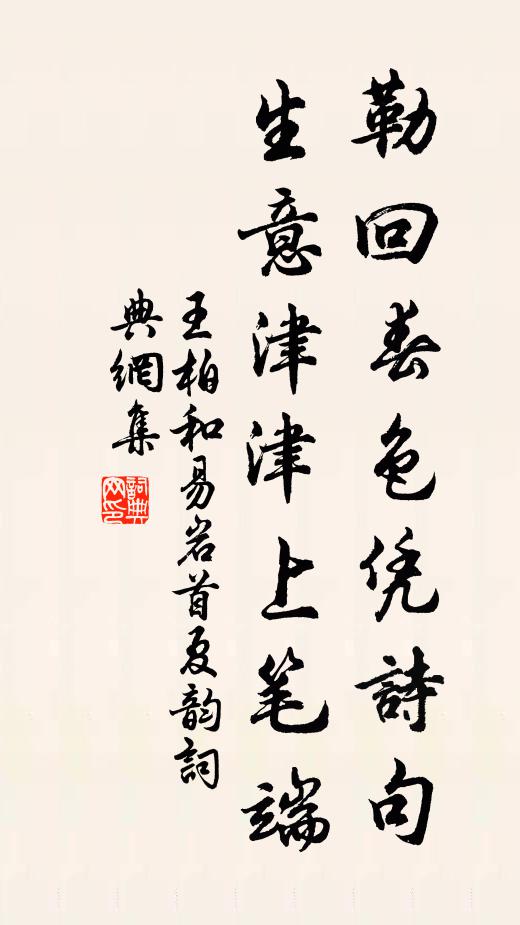 勒回春色凭詩句
生意津津上笔端
王柏和易岩首夏韵詞
典網集
詞典
网印